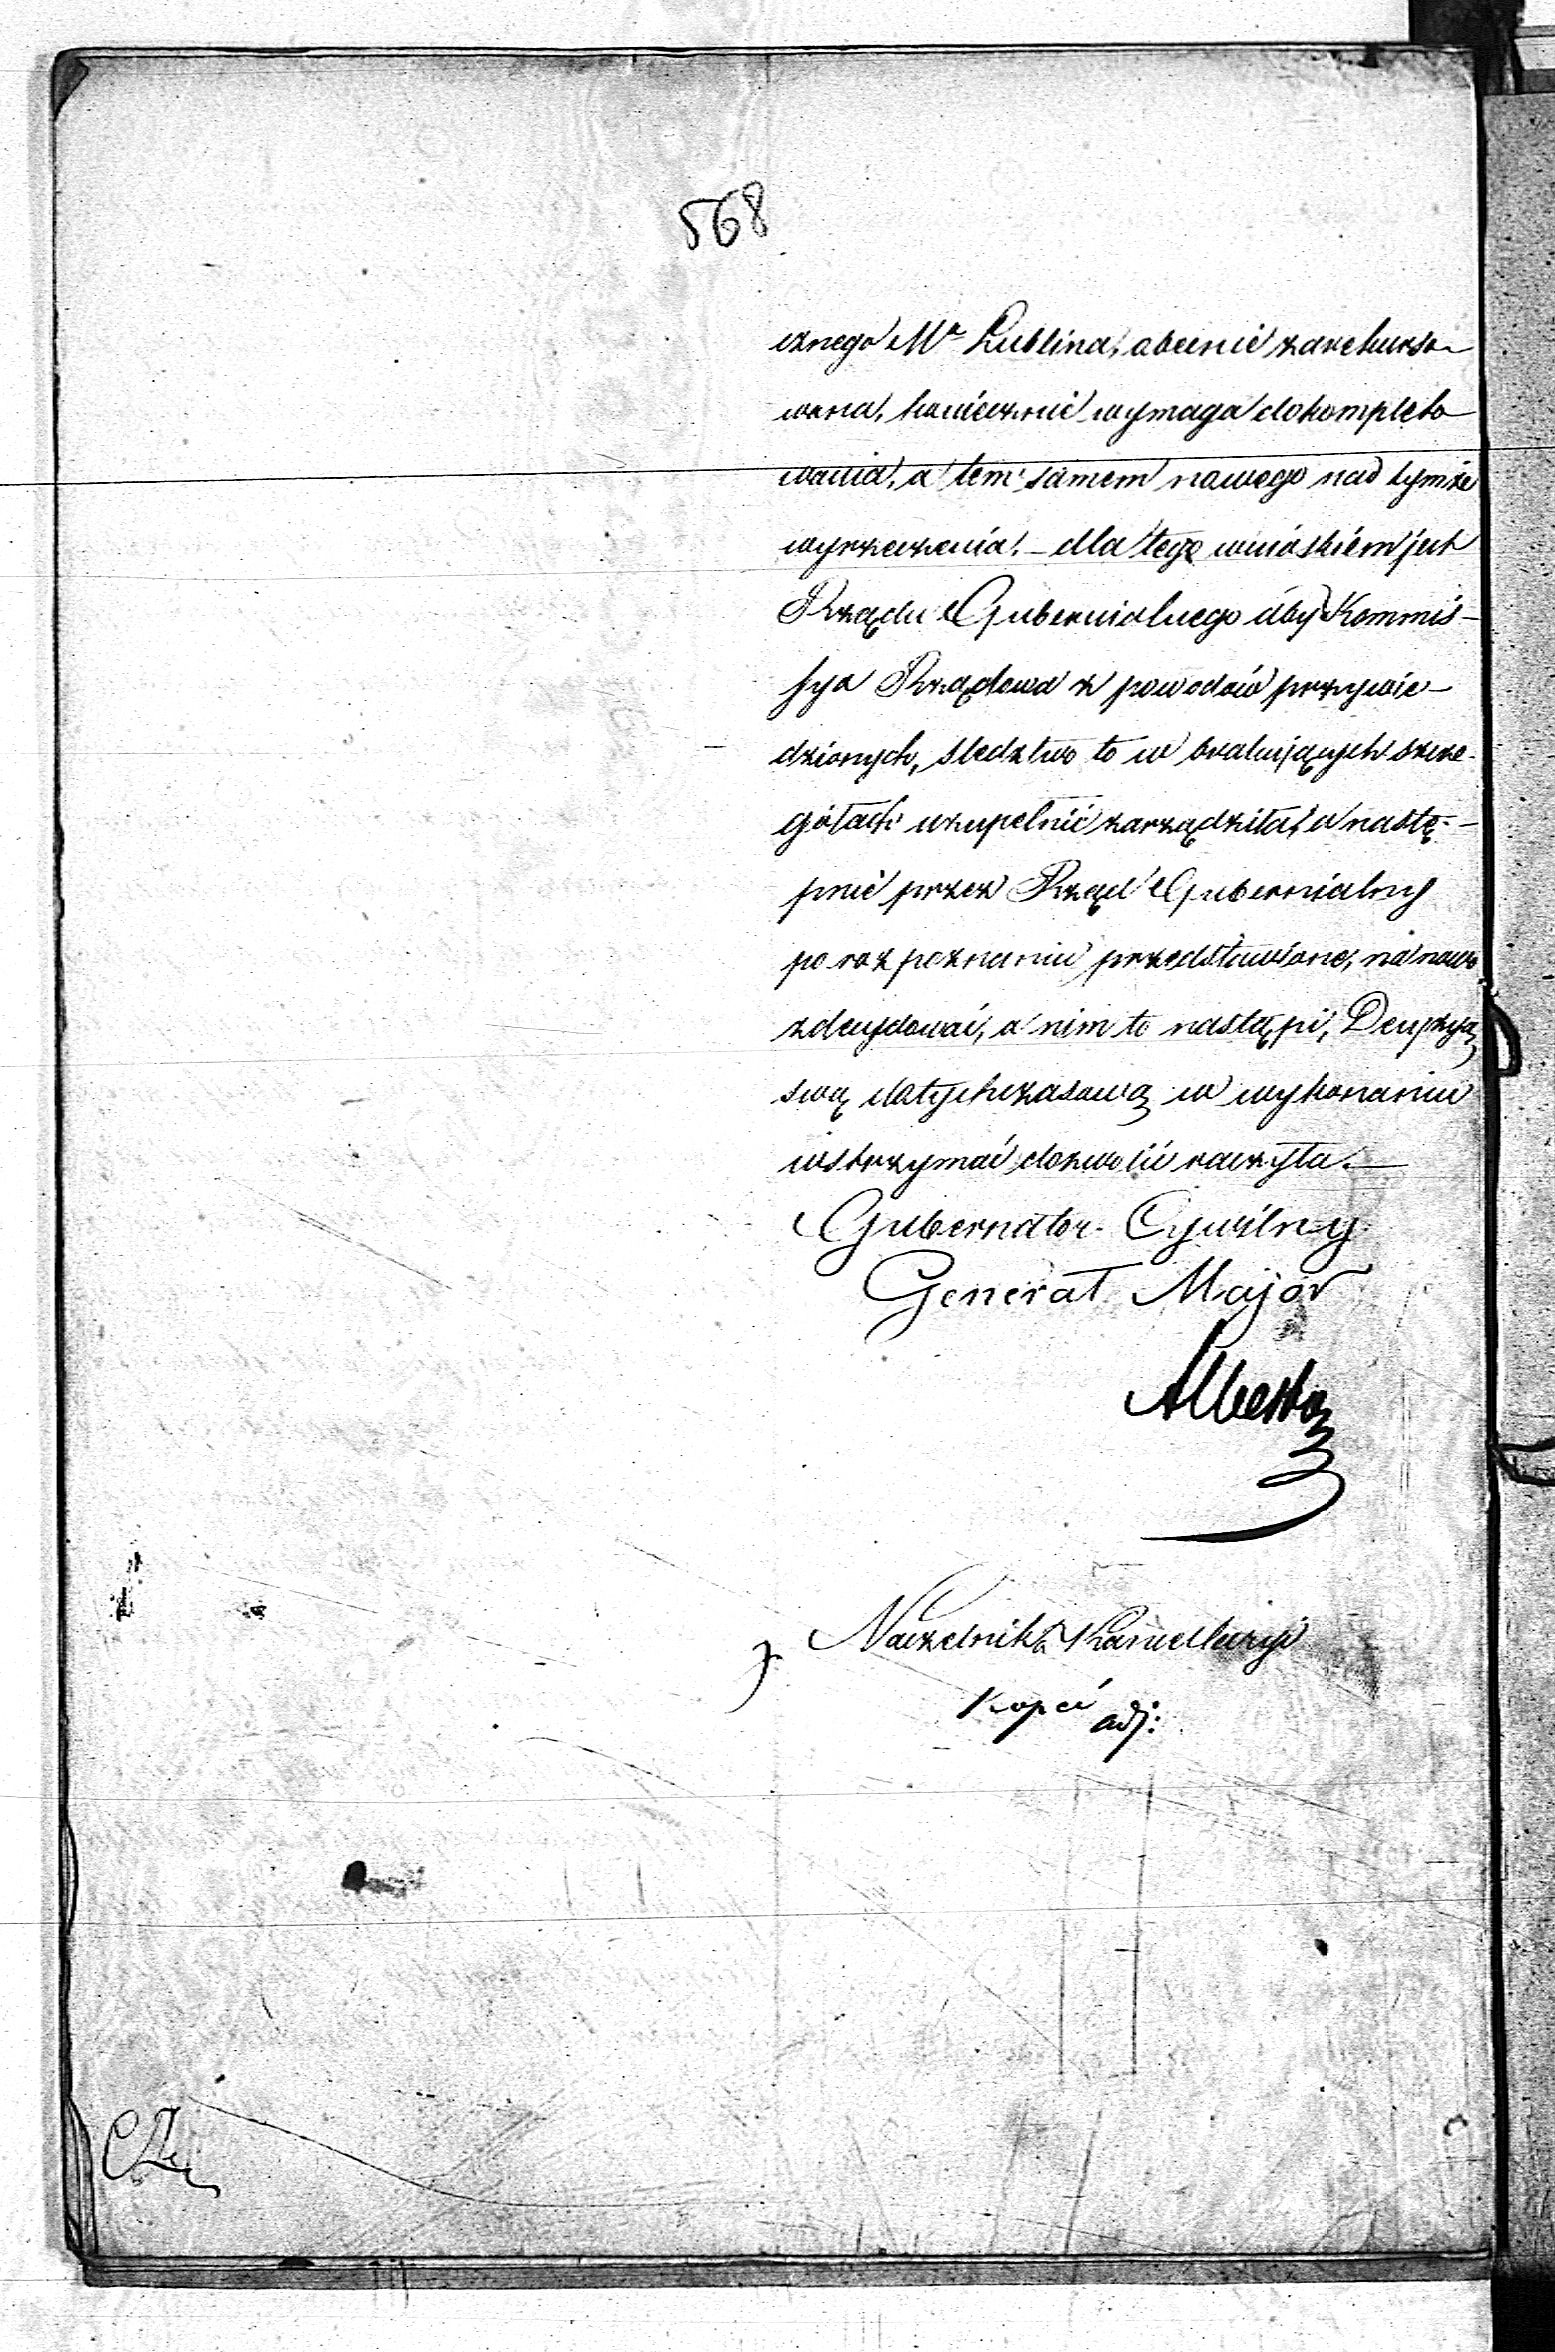 568
cznego Mta Lublina, obecnie zarekurso-
wana, koniecznie wymaga dokompleto
wania, a tem samem nowego nad tymże
wyrzeczenia. – dla tego wnioskiem jest
Rządu Gubernialnego aby Kommis-
sya Rządowa z powodów przywie-
dzionych, śledztwo to w brakujących szcze-
gółach uzupełnić zarządziła, a nastę-
pnie przez Rząd Gubernialny
po rozpoznaniu przedstawione, na nowo
zdecydować, a nim to nastąpi, Decyzyą
swą dotychczasową w wykonaniu
wstrzymać dozwolić raczyła. —
Gubernator Cywilny
Generał Major
Albertov
Naczelnik Kancellaryi
Kopeć adj: